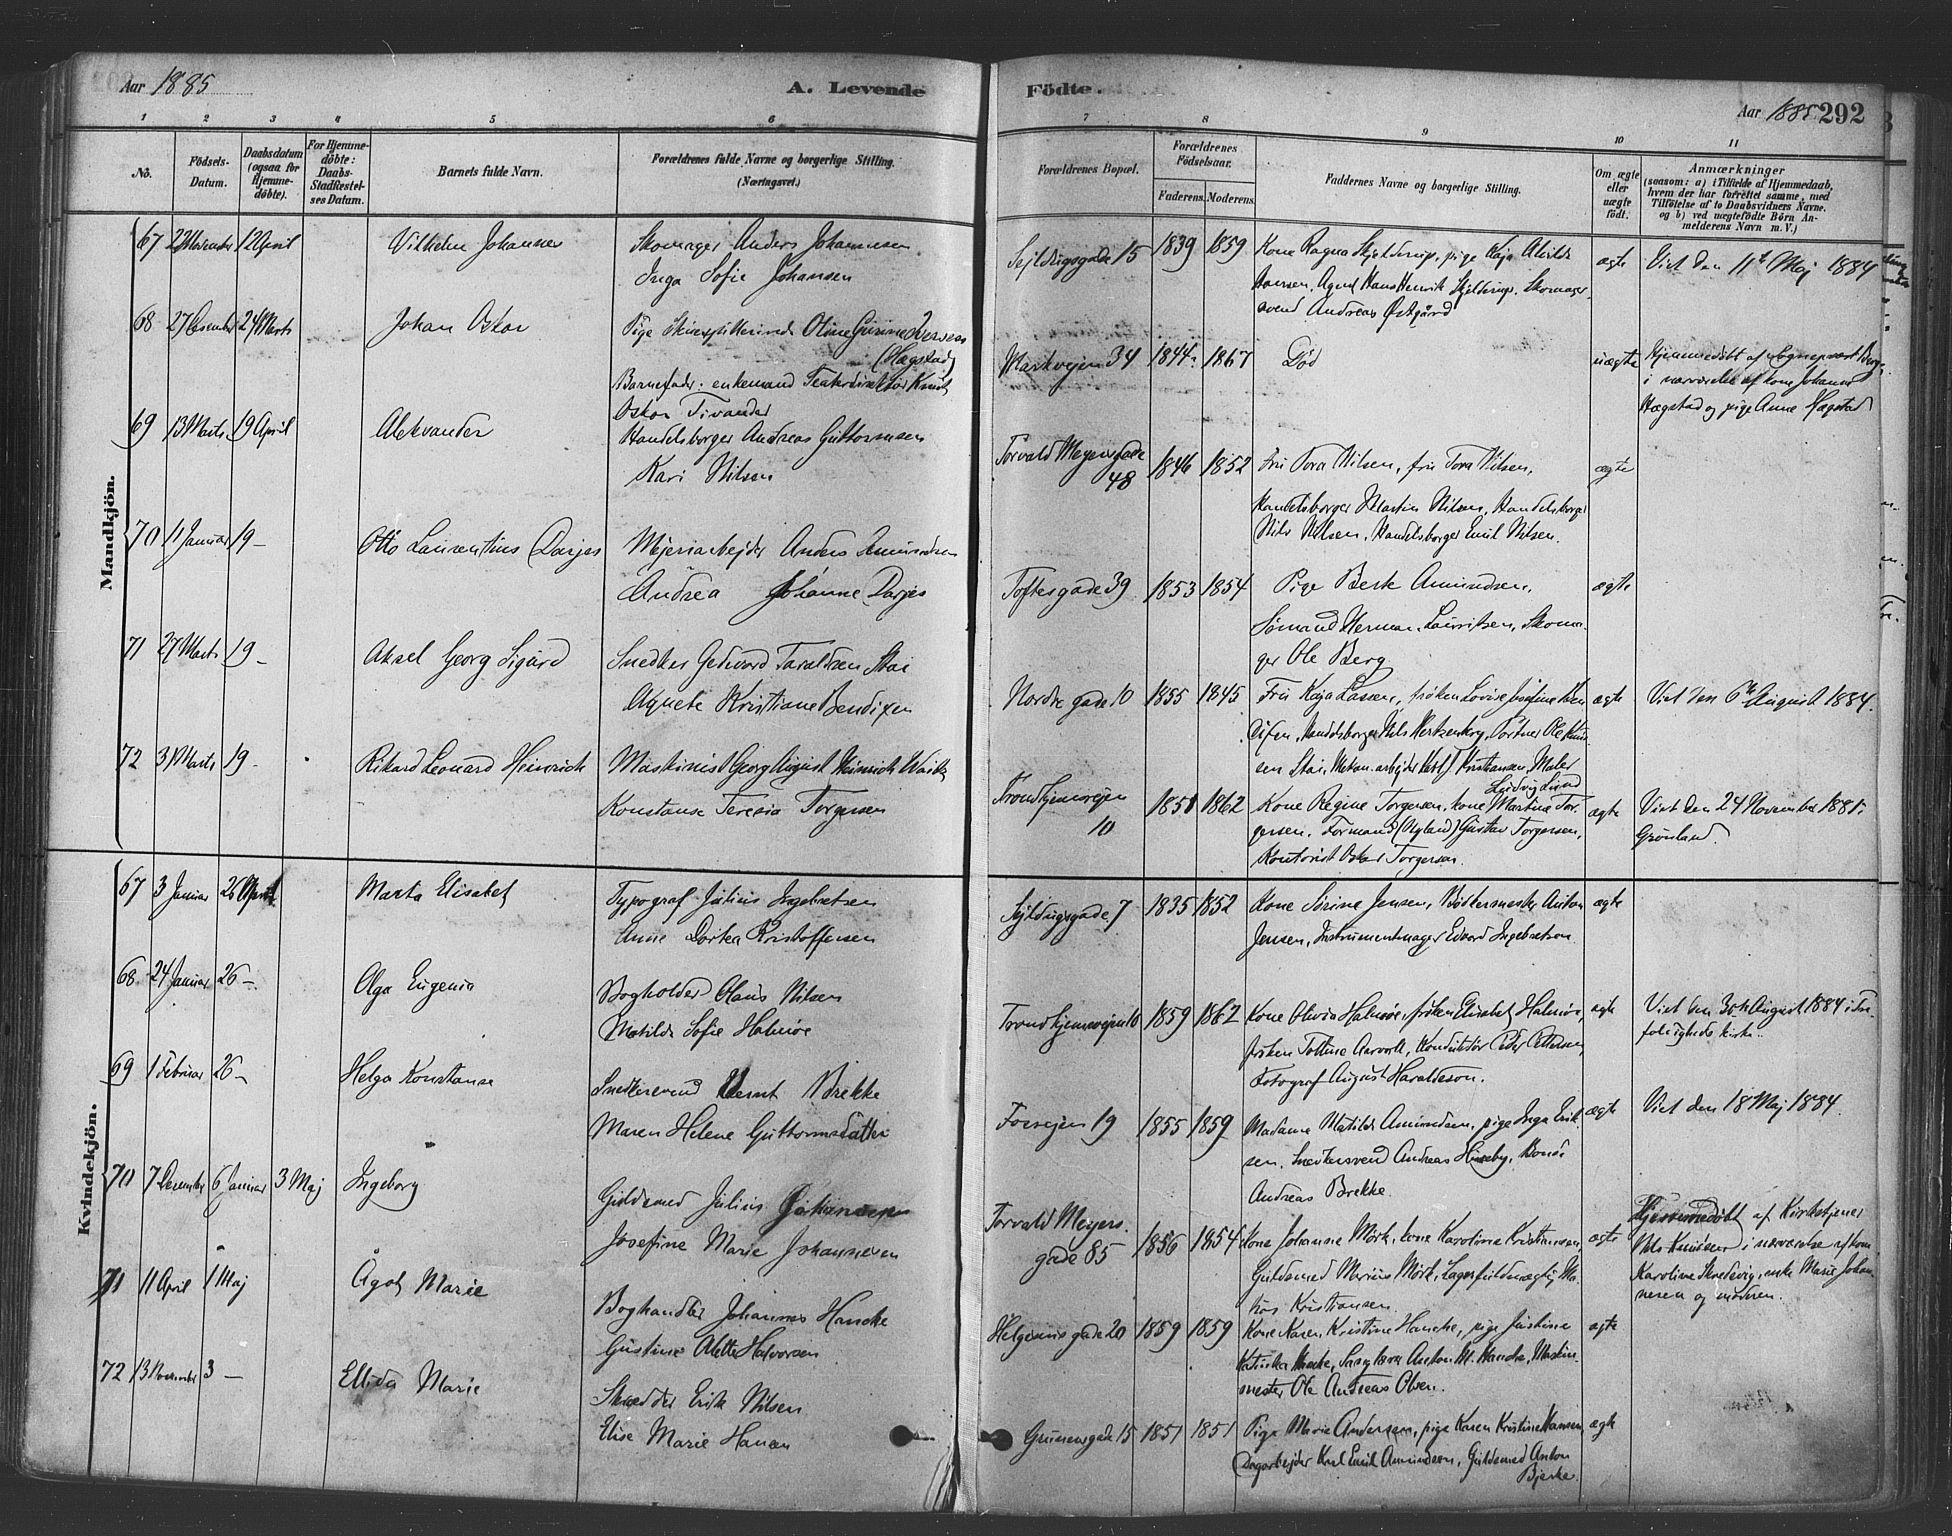 Aar 1885
A. Levende
Födte.
Aar 1885 292
1 2 3 4 5 6 7 8 9 10 11
No.
Födsels-Datum.
Daabsdatum (ogsaa for Hjemmedöbte).
For Hjemmedöbte: Daabs-Stadfæstelses Datum.
Barnets fulde Navn.
Forældrenes fulde Navne og borgerlige Stilling. (Næringsvei.)
Forældrenes Bopæl.
Forældrenes Födselsaar.
Faderens. Moderens.
Faddernes Navne og borgerlige Stilling.
Om ægte eller uægte födt.
Anmærkninger
(saasom: a) i Tilfælde af Hjemmedaab, hvem der har forrettet samme, med Tilföielse af to Daabsvidners Navne. og b) ved uægtefödte Börn Anmelderens Navn m. V.)
Mandkjön.
67 12 April Vilhelm Johannes Skomager Anders Johannesen
Inga Sofie Johansen
15 1839 1859 Kone Ragna Skjelderup, pige Kaja Alvilde
Hansen, Agent Hans Henrik Skjelderup, Skomager-
svend Andreas Østgård
ægte Viet den 11te Maj 1884
68 27 Desember 24 Marts Johan Oskar Pige Oline Gurine Iversen
(Hægstad)
Barnefader: enkemand Teaterdirektør Knut
Oskar Tivander
Markvejen 34 1844 1867 Død uægte
Hjemmedøbt af Sogneprest
i nærværelse af kone Johanne
Hægstad og pige Anne Hægstad
69 13 Marts 19 April Aleksander Handelsborger Andreas Guttormsen
Kari Nilsen
Torvald Meyersgade 48 1846 1852 Fru Tora Nilsen, fru Tora Nilsen,
Handelsborger Martin Nilsen, Handelsborger
Nils Nilsen, Handelsborger Emil Nilsen.
ægte
70 11 Januar 19 — Otto Laurentius Darjes Mejeriarbejder Anders Amundsen
Andrea Johanne Darjes
Toftesgade 39 1853 1854 Pige Berte Amundsen,
Sømand Herman Lauritsen, Skoma-
ger Ole Berg
ægte
71 27 Marts 19 — Aksel Georg Sigurd Snedker Taraldsen Stai
Agnete Kristiane Bendixen
Nordre gade 10 1855 1845 Fru Kaja Lassen, frøken Lovise Josefine Ben-
dixen, Handelsborger Nils Hertzenberg, Portner Ole
sen Stai, Mekan. arbejder Kristiansen, Maler
Ludvig Lund
ægte Viet den 6te August 1884.
72 Marts 19 — Rikard Leonard Heinrich Maskinist Georg August Heinrich
Konstanse Teresia Torgersen
Trondhjemsvejen 10 1851 1862 Kone Regine Torgersen, kone Martine Tor-
gersen, Formand Gustav Torgersen,
Kontorist Oskar Torgersen.
ægte Viet den 24 November
Grønland.
Kvindekjön.
67 3 Januar 26 April Marta Elisabet Typograf Julius Ingebretsen
Anne Dortea Kristoffersen
7 1835 1852 Kone Sørine Jensen, Bødkermester Anton
Jensen, Instrumentmager Edvard Ingebretsen
ægte
68 24 Januar 26 — Olga Eugenia Bogholder Olaus Nilsen
Matilde Sofie Halnøe
Trondhjemsvejen 10 1859 1862 Kone Olivia Halnøe, frøken Elisabet Halnøe,
frøken Konduktør Peder Pettersen,
Fotograf August Haraldsson.
ægte Viet den 30te August 1884 i Tre-
foldigheds kirke.
69 1 Februar 26 — Helga Konstanse Snedkersvend Bernt Brekke
Maren Helene Guttormsdatter
Fossvejen 19 1855 1859 Madame Matilde Amundsen, pige Inga Erik-
sen, Snedkersvend Andreas Huseby,
Andreas Brekke.
ægte Viet den 18 Maj 1884.
70 7 Desember 6 Januar 3 Maj Ingeborg Guldsmed Julius Johannesen
Josefine Marie Johannesen
Torvald Meyers gade 85 1856 1854 Kone Johanne Mørk, kone Karoline Kristiansen,
Guldsmed Marius Mørk, Lagerfuldmægtig
Kristiansen.
ægte Hjemmedøbt af Kirketjener
Nils Knudsen i nærværelse af kone
Karoline Skredsvig, enke Marie Johan-
nesen og moderen.
71 11 April 1 Maj Ågot Marie Boghandler Johannes Hancke
Gustine Alette Halvorsen
Helgesens gade 20 1859 1859 Kone Karen Kristine Hancke, pige Justine
Katinka Hancke, Anton M. Hancke, Maskin-
mester Ole Andreas Olsen.
ægte
72 13 November 3 — Ellida Marie Skrædder Erik Nilsen
Elise Marie Hansen
Grünersgade 15 1851 1851 Pige Marie Andersen, pige Karen Kristine Hansen,
Dagarbejder Karl Emil Amundsen, Guldsmed Anton
Bjerke.
ægte